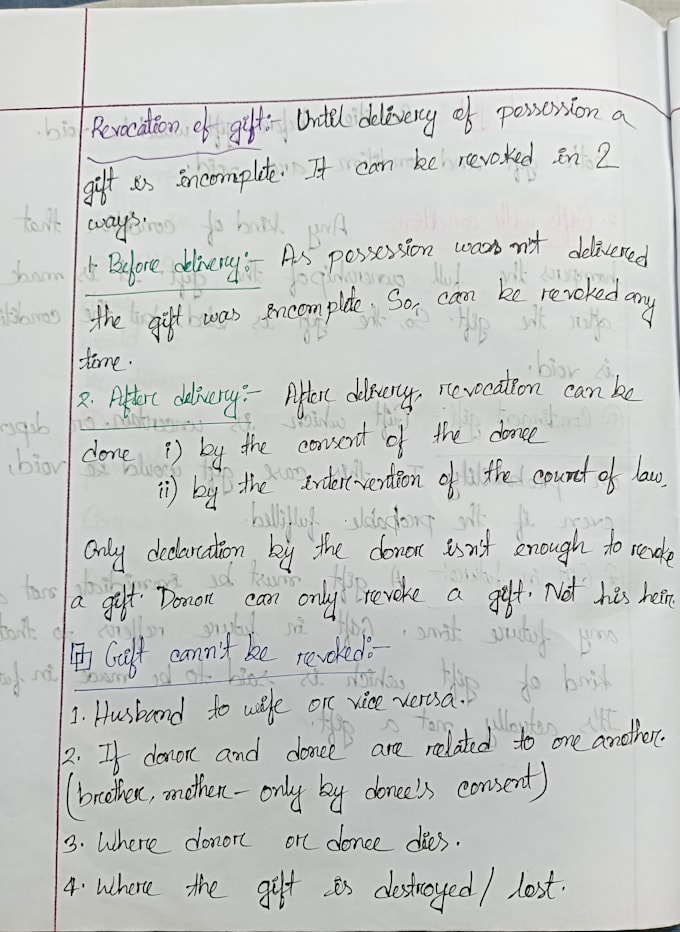 Revocation of gift:- Until delivery of possession a
gift is incomplete. It can be revoked in 2
ways.
1. Before delivery:- As possession was not delivered
the gift was incomplete. So, can be revoked any
time.
2. After delivery:- After delivery, revocation can be
done i) by the consent of the donee
ii) by the intervention of the court of law.
Only declaration by the donor isn't enough to revoke
a gift. Donor can only revoke a gift. Not his heir.
Gift cann't be revoked:-
1. Husband to wife or vice versa.
2. If donor and donee are related to one another.
(brother, mother - only by donee's consent)
3. Where donor or donee dies.
4. Where the gift is destroyed / lost.